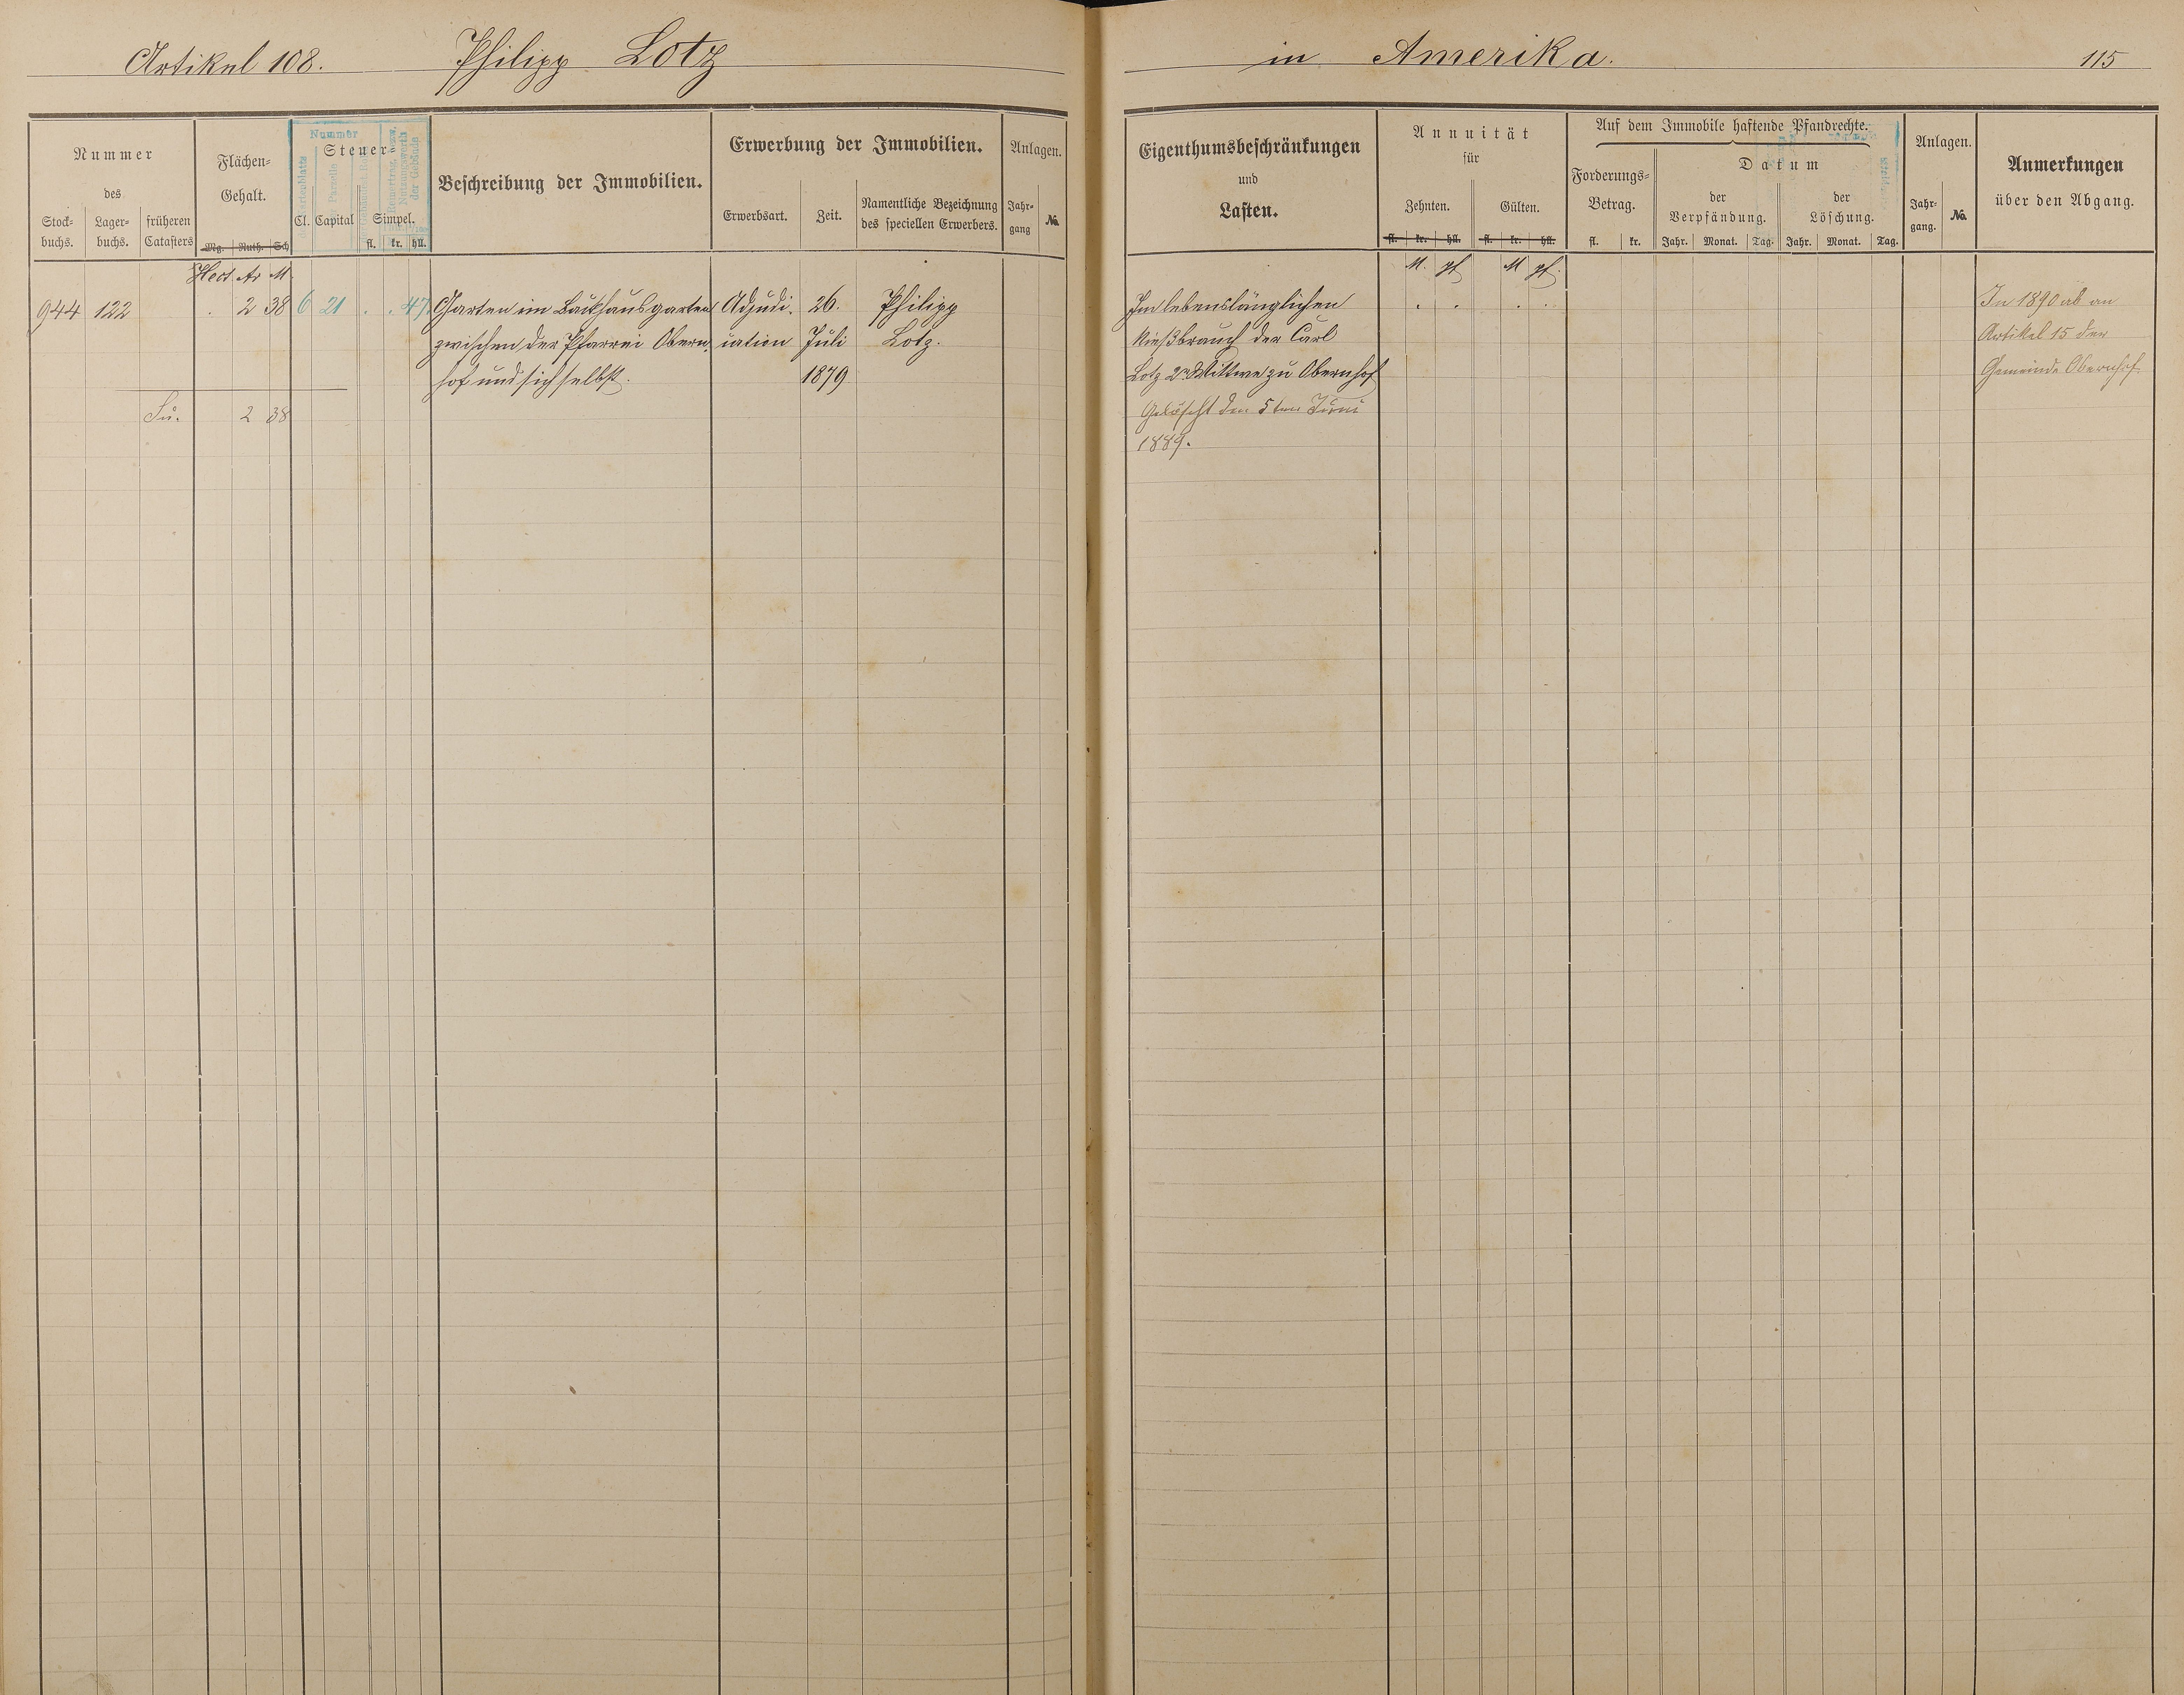 Artikel 108. Philipp Lotz in Amerika. 115
Nummer
des
Stock-
buchs.
Lager-
buchs.
früheren
Catasters
Flächen-
Gehalt.
Mg. Ruth. Sch
Nummer
Steuer-
Cl. Capital Simpel.
fl. kr. hll.
Beschreibung der Immobilien.
Erwerbung der Immobilien.
Erwerbsart. Zeit.
Namentliche Bezeichnung
des speciellen Erwerbers.
Anlagen.
Jahr-
gang
No.
Hect. Ar M.
944 122 . 2 38 6 21 . . 47 Garten im Backhausgarten Adjudi- 26. Philipp
zwischen der Pfarrei Obern- cation Juli Lotz.
hof und sich selbst. 1879
Su. 2 38
Eigenthumsbeschränkungen
und
Lasten.
Annuität
für
Zehnten. Gülten.
fl. kr. hll. fl. kr. hll.
Auf dem Immobile haftende Pfandrechte.
Forderungs-
Betrag.
fl. kr.
Datum
der
Verpfändung.
der
Löschung.
Jahr. Monat. Tag. Jahr. Monat. Tag.
Anlagen.
Jahr-
gang.
No.
Anmerkungen
über den Abgang.
M. pf M pf.
Im lebenslänglichen . . . . In 1890 ab an
Nießbrauch der Carl Artikel 15 der
Lotz 2r Wittwe zu Obernhof Gemeinde Obernhof.
Gelöscht den 5ten Juni
1889.